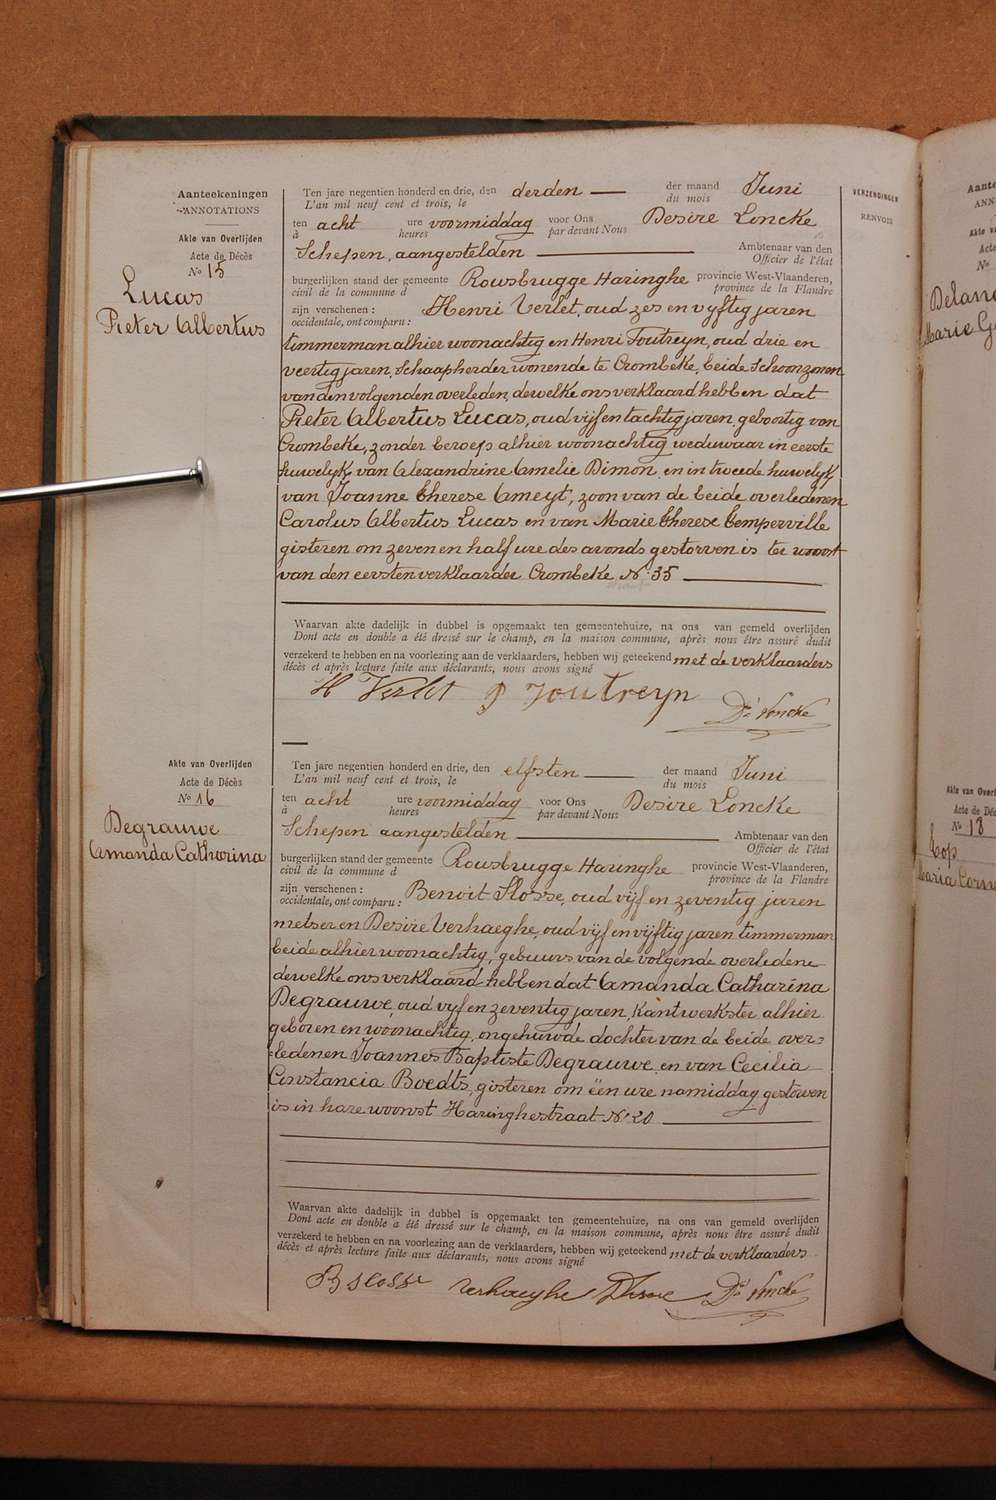 Aanteekeningen
ANNOTATIONS
Akte van Overlijden
Acte de Décès
No 15
Lucas
Pieter Albertus
Ten jare negentien honderd en drie, den derden der maand Juni
L'an mil neuf cent et trois, le du mois
ten acht ure voormiddag voor Ons Desire Loncke
à heures par devant Nous
Schepen, aangestelden Ambtenaar van den
Officier de l'état
burgerlijken stand der gemeente Rousbrugge Haringhe provincie West-Vlaanderen,
civil de la commune d province de la Flandre
zijn verschenen : Henri Verlet, oud zes en vyftig jaren
occidentale, ont comparu :
timmerman alhier woonachtig en Henri Toutreyn, oud drie en
veertig jaren, schaapherder wonende te Crombeke, beide schoonzonen
van den volgenden overleden, dewelke ons verklaard hebben dat
Pieter Albertus Lucas, oud vijf en tachtig jaren, geboortig van
Crombeke, zonder beroep alhier woonachtig weduwaar in eerste
huwelijk van Alexandrine Amelie Dimon en in tweede huwelyk
van Joanne Therese Ameyt, zoon van de beide overledenen
Carolus Albertus Lucas en van Marie Therese Temperville
gisteren om zeven en half ure des avonds gestorven is ter woonst
van den eersten verklaarder Crombeke No 35
Waarvan akte dadelijk in dubbel is opgemaakt ten gemeentehuize, na ons van gemeld overlijden
Dont acte en double a été dressé sur le champ, en la maison commune, après nous être assuré dudit
verzekerd te hebben en na voorlezing aan de verklaarders, hebben wij geteekend met de verklaarders
décès et après lecture faite aux déclarants, nous avons signé
H Verlet Toutreyn
Dé Loncke
Akte van Overlijden
Acte de Décès
No 16
Degrauwe
Amanda Catharina
Ten jare negentien honderd en drie, den elfsten der maand Juni
L'an mil neuf cent et trois, le du mois
ten acht ure voormiddag voor Ons Desire Loncke
à heures par devant Nous
Schepen aangestelden Ambtenaar van den
Officier de l'état
burgerlijken stand der gemeente Rousbrugge Haringhe provincie West-Vlaanderen,
civil de la commune d province de la Flandre
zijn verschenen : Benoit Slosse, oud vijf en zeventig jaren
occidentale, ont comparu :
metser en Desire Verhaeghe, oud vijf en vijftig jaren timmerman
beide alhier woonachtig, gebuurs van de volgende overledene
dewelke ons verklaard hebben dat Amanda Catharina
Degrauwe, oud vyf en zeventig jaren, kantwerkster alhier
geboren en woonachtig, ongehuwde dochter van de beide over=
=ledenen Joannes Baptiste Degrauwe en van Cecilia
Constancia Boedts, gisteren om één ure namiddag gestorven
is in hare woonst Haringhestraat No 20
Waarvan akte dadelijk in dubbel is opgemaakt ten gemeentehuize, na ons van gemeld overlijden
Dont acte en double a été dressé sur le champ, en la maison commune, après nous être assuré dudit
verzekerd te hebben en na voorlezing aan de verklaarders, hebben wij geteekend met de verklaarders
décès et après lecture faite aux déclarants, nous avons signé
B Slosse Verhaeghe Désiré Dé Loncke
VERZENDINGEN
RENVOIS
No 18
Cop